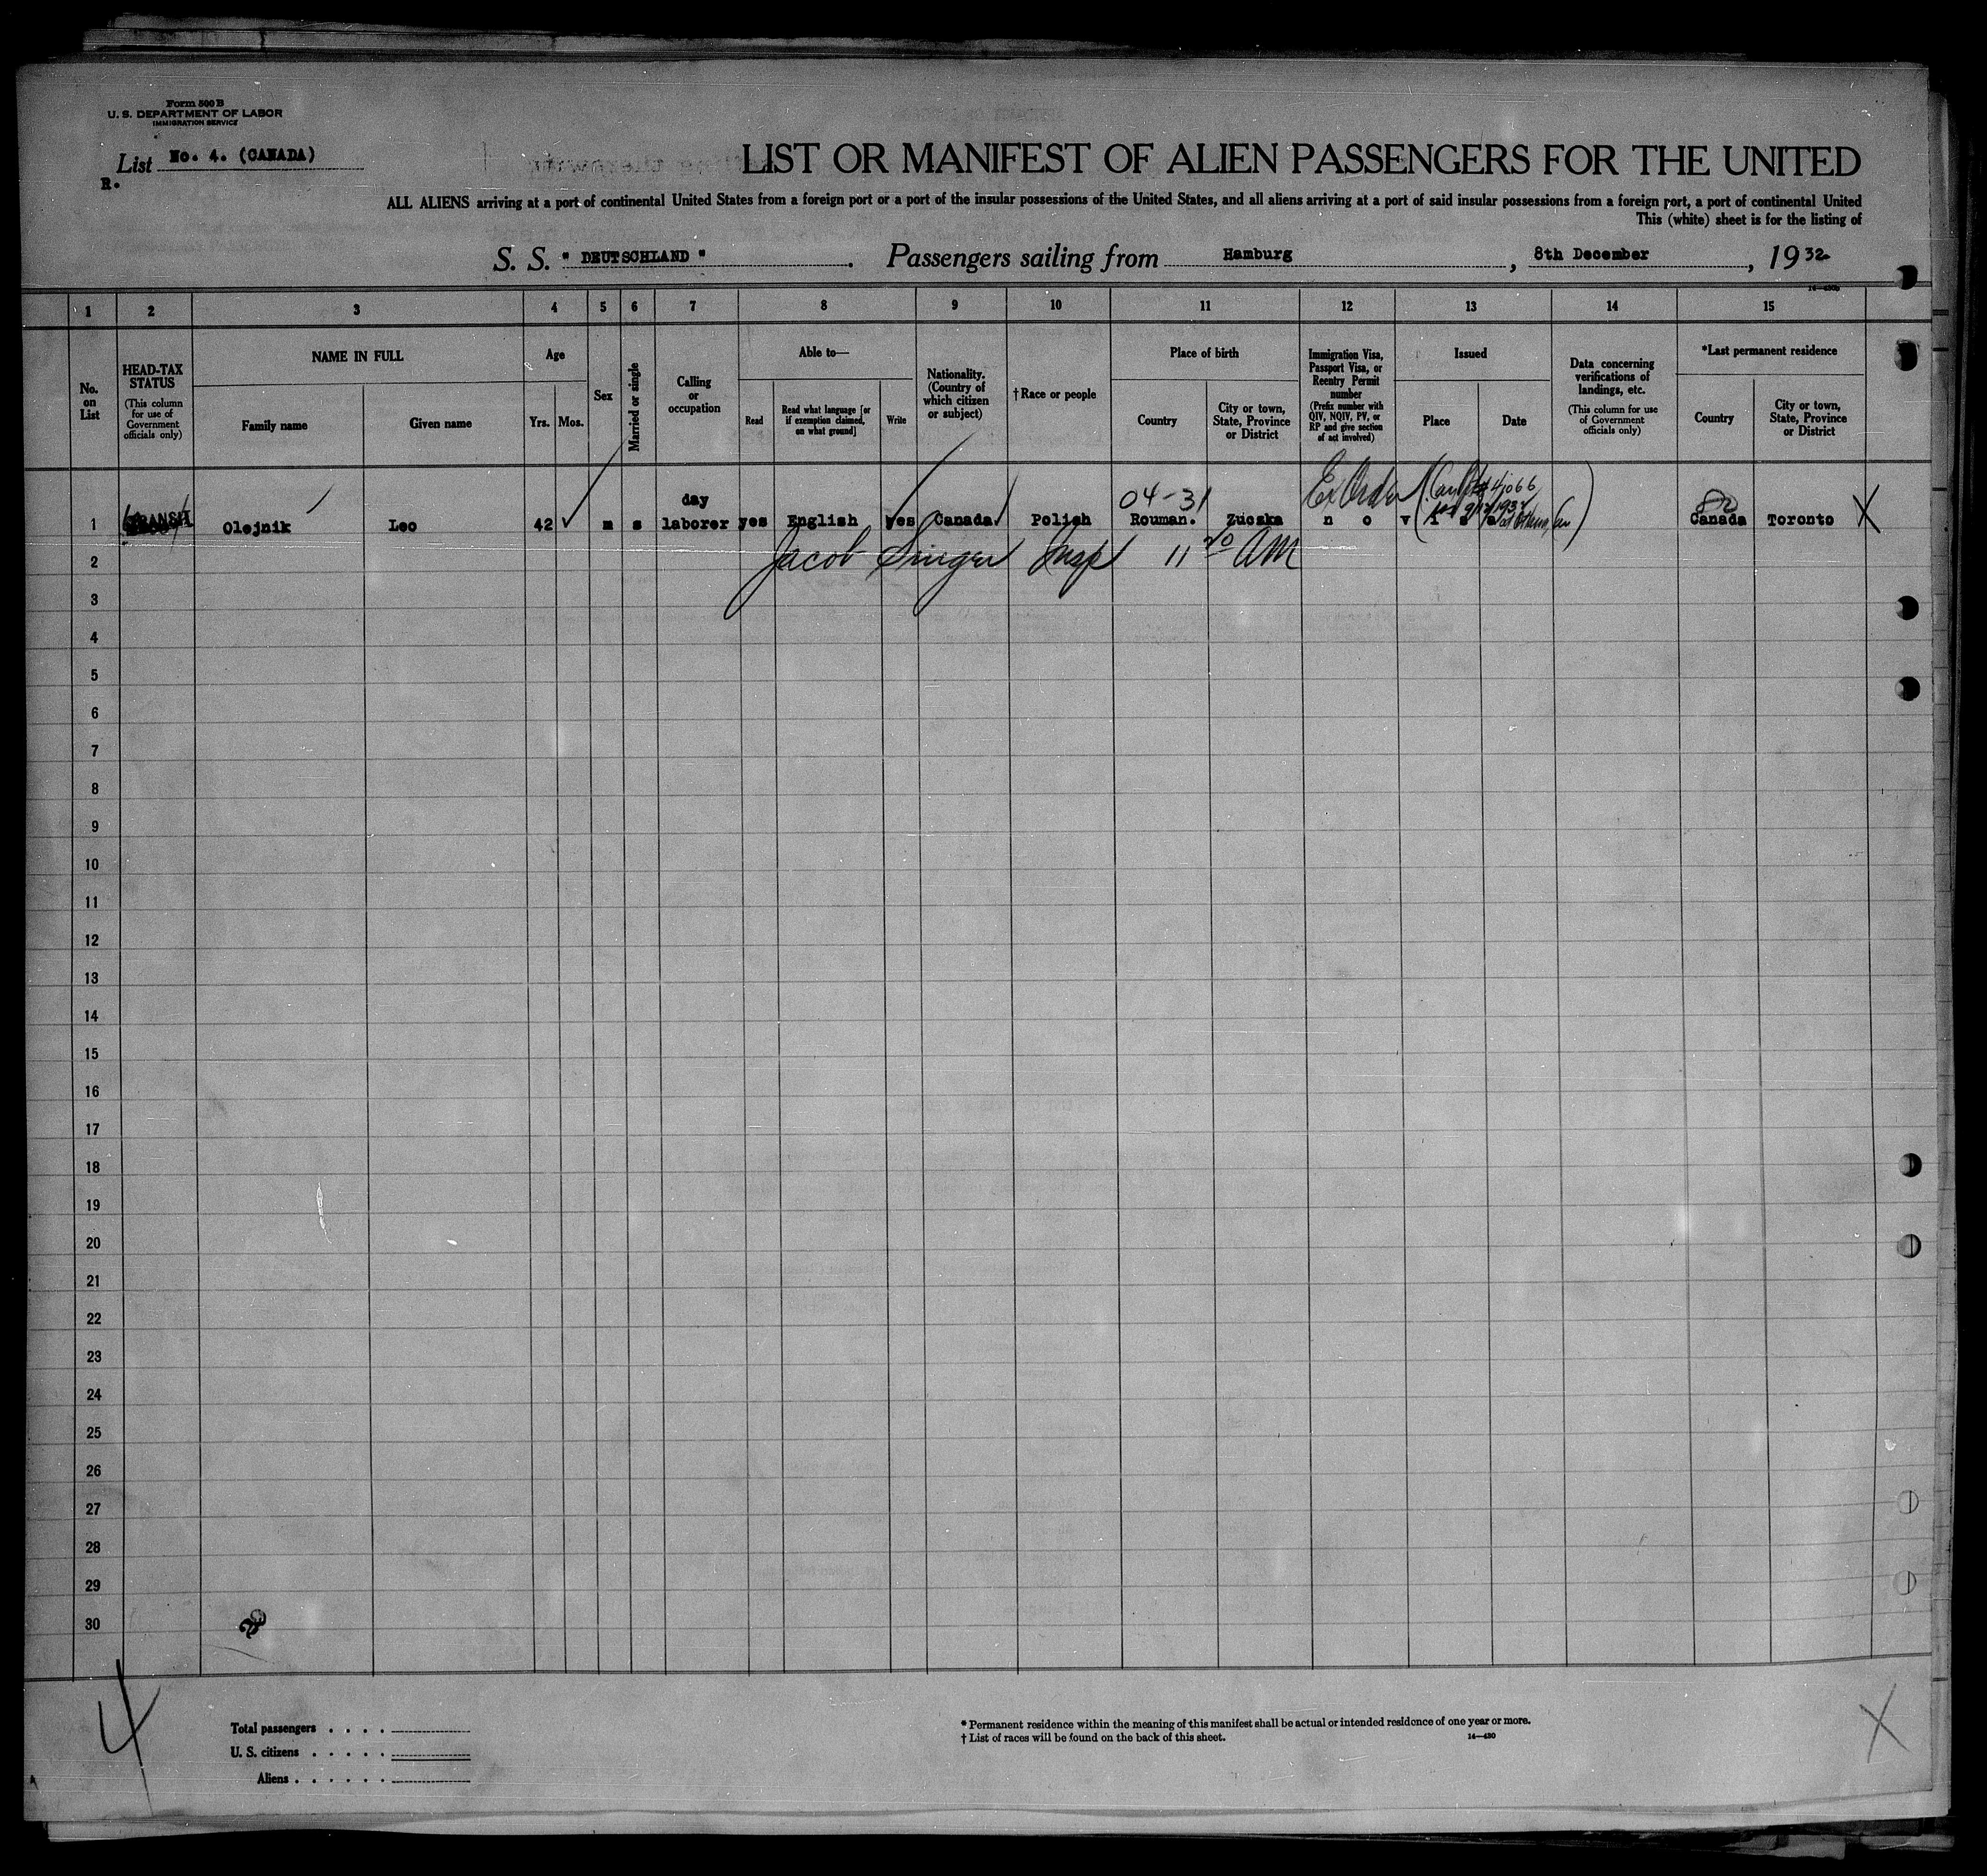 Form 500 B
U. S. DEPARTMENT OF LABOR
IMMIGRATION SERVICE
List No. 4. (CANADA)
R.
LIST OR MANIFEST OF ALIEN PASSENGERS FOR THE UNITED
ALL ALIENS arriving at a port of continental United States from a foreign port or a port of the insular possessions of the United States, and all aliens arriving at a port of said insular possessions from a foreign port, a port of continental United
This (white) sheet is for the listing of
S. S. "DEUTSCHLAND". Passengers sailing from Hamburg, 8th December, 1932.
1 2 3 4 5 6 7 8 9 10 11 12 13 14 15
No. on List
HEAD-TAX STATUS
(This column for use of Government officials only)
NAME IN FULL
Family name Given name
Age
Yrs. Mos.
Sex
Married or single
Calling or occupation
Able to—
Read
Read what language [or if exemption claimed, on what ground]
Write
Nationality. (Country of which citizen or subject)
†Race or people
Place of birth
Country
City or town, State, Province or District
Immigration Visa, Passport Visa, or Reentry Permit number
(Prefix number with QIV, NQIV, PV, or RP and give section of act involved)
Issued
Place Date
Data concerning verifications of landings, etc.
(This column for use of Government officials only)
*Last permanent residence
Country
City or town, State, Province or District
04-31 Ex Order
1 TRANSIT Olejnik Leo 42 m s day laborer yes English yes Canada Polish Rouman. Zucska no visa Canada Toronto X
2 Jacob Singer Insp 11 20 AM
3
4
5
6
7
8
9
10
11
12
13
14
15
16
17
18
19
20
21
22
23
24
25
26
27
28
29
30
4
Total passengers
U. S. citizens
Aliens
* Permanent residence within the meaning of this manifest shall be actual or intended residence of one year or more.
† List of races will be found on the back of this sheet.
14—430
X